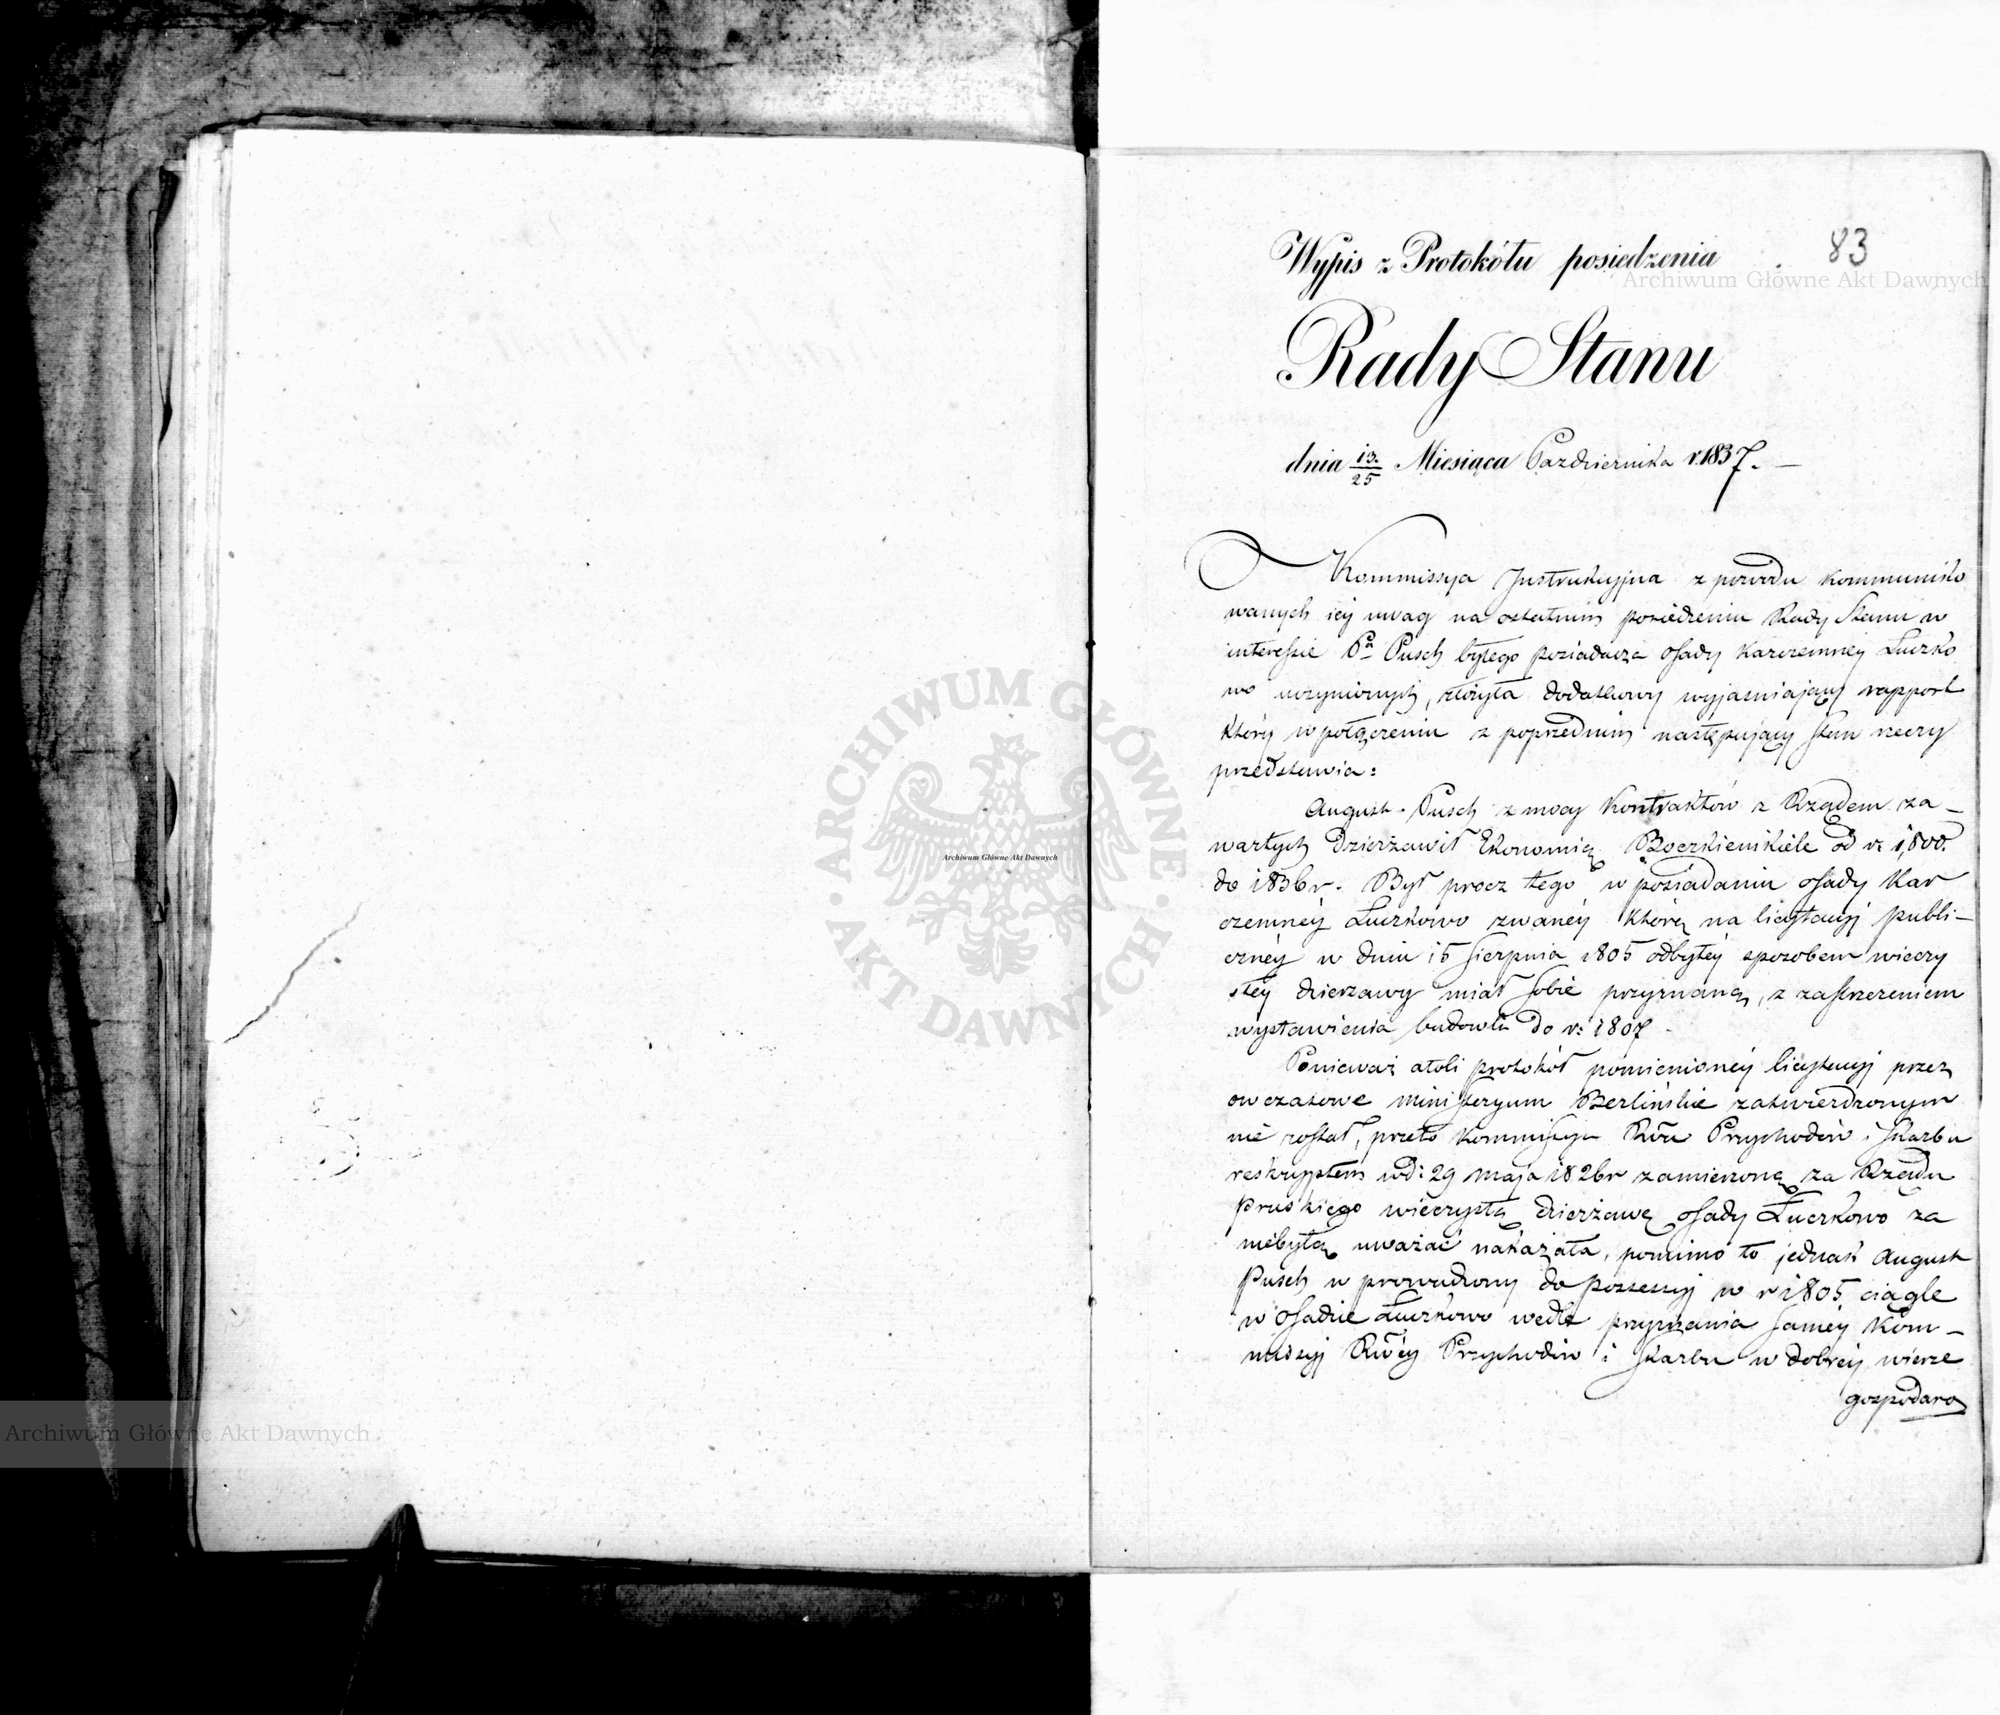 83
Wypis z Protokółu posiedzenia
Archiwum Główne Akt Dawnych
Rady Stanu
dnia 13/25 Miesiąca Października r. 1837. —
Kommissya Instrukcyjna z powodu kommuniko
wanych iey uwag na ostatnim posiedzeniu Rady Stanu w
interessie Pa Pusch byłego posiadacza osady karczemney Łuczko
wo uczynionych, złożyła dodatkowy wyjaśniający rapport
który w połączeniu z poprzednim następujący stan rzeczy
przedstawia:
August Pusch z mocy Kontraktów z Rządem za—
wartych dzierżawił Ekonomią od r. 1800.
do 1836 r. Był procz tego w posiadaniu osady Kar
czemnéy Łuczkowo zwanéy którą na licytacyj publi—
cznéy w dniu 15 Sierpnia 1805 odbytéy sposobem wieczy
stéy dzierzawy miał sobie przyznaną, z zastrzeżeniem
wystawienia budowli do r: 1807
Ponieważ atoli protokół pomienionéy licytacyj przez
owczasowe ministeryum Berlińskie zatwierdzonym
nie został, przeto Kommissya Rwa Przychodów i Skarbu
reskryptem z d: 29 Maja 1826 r zamierzoną za Rządu
Pruskiego wieczystą dzierżawę osady Łuczkowo za
niebyłą uważać nakazała, pomimo to jednak August
Pusch w prowadzony do possessyj w r 1805 ciągle
w osadzie Łuczkowo wedle przyznania saméy Kom—
missyj Rwéy Przychodów i Skarbu w dobréy wierze
gospodaro
ARCHIWUM GŁÓWNE AKT DAWNYCH
Archiwum Główne Akt Dawnych
Archiwum Główne Akt Dawnych